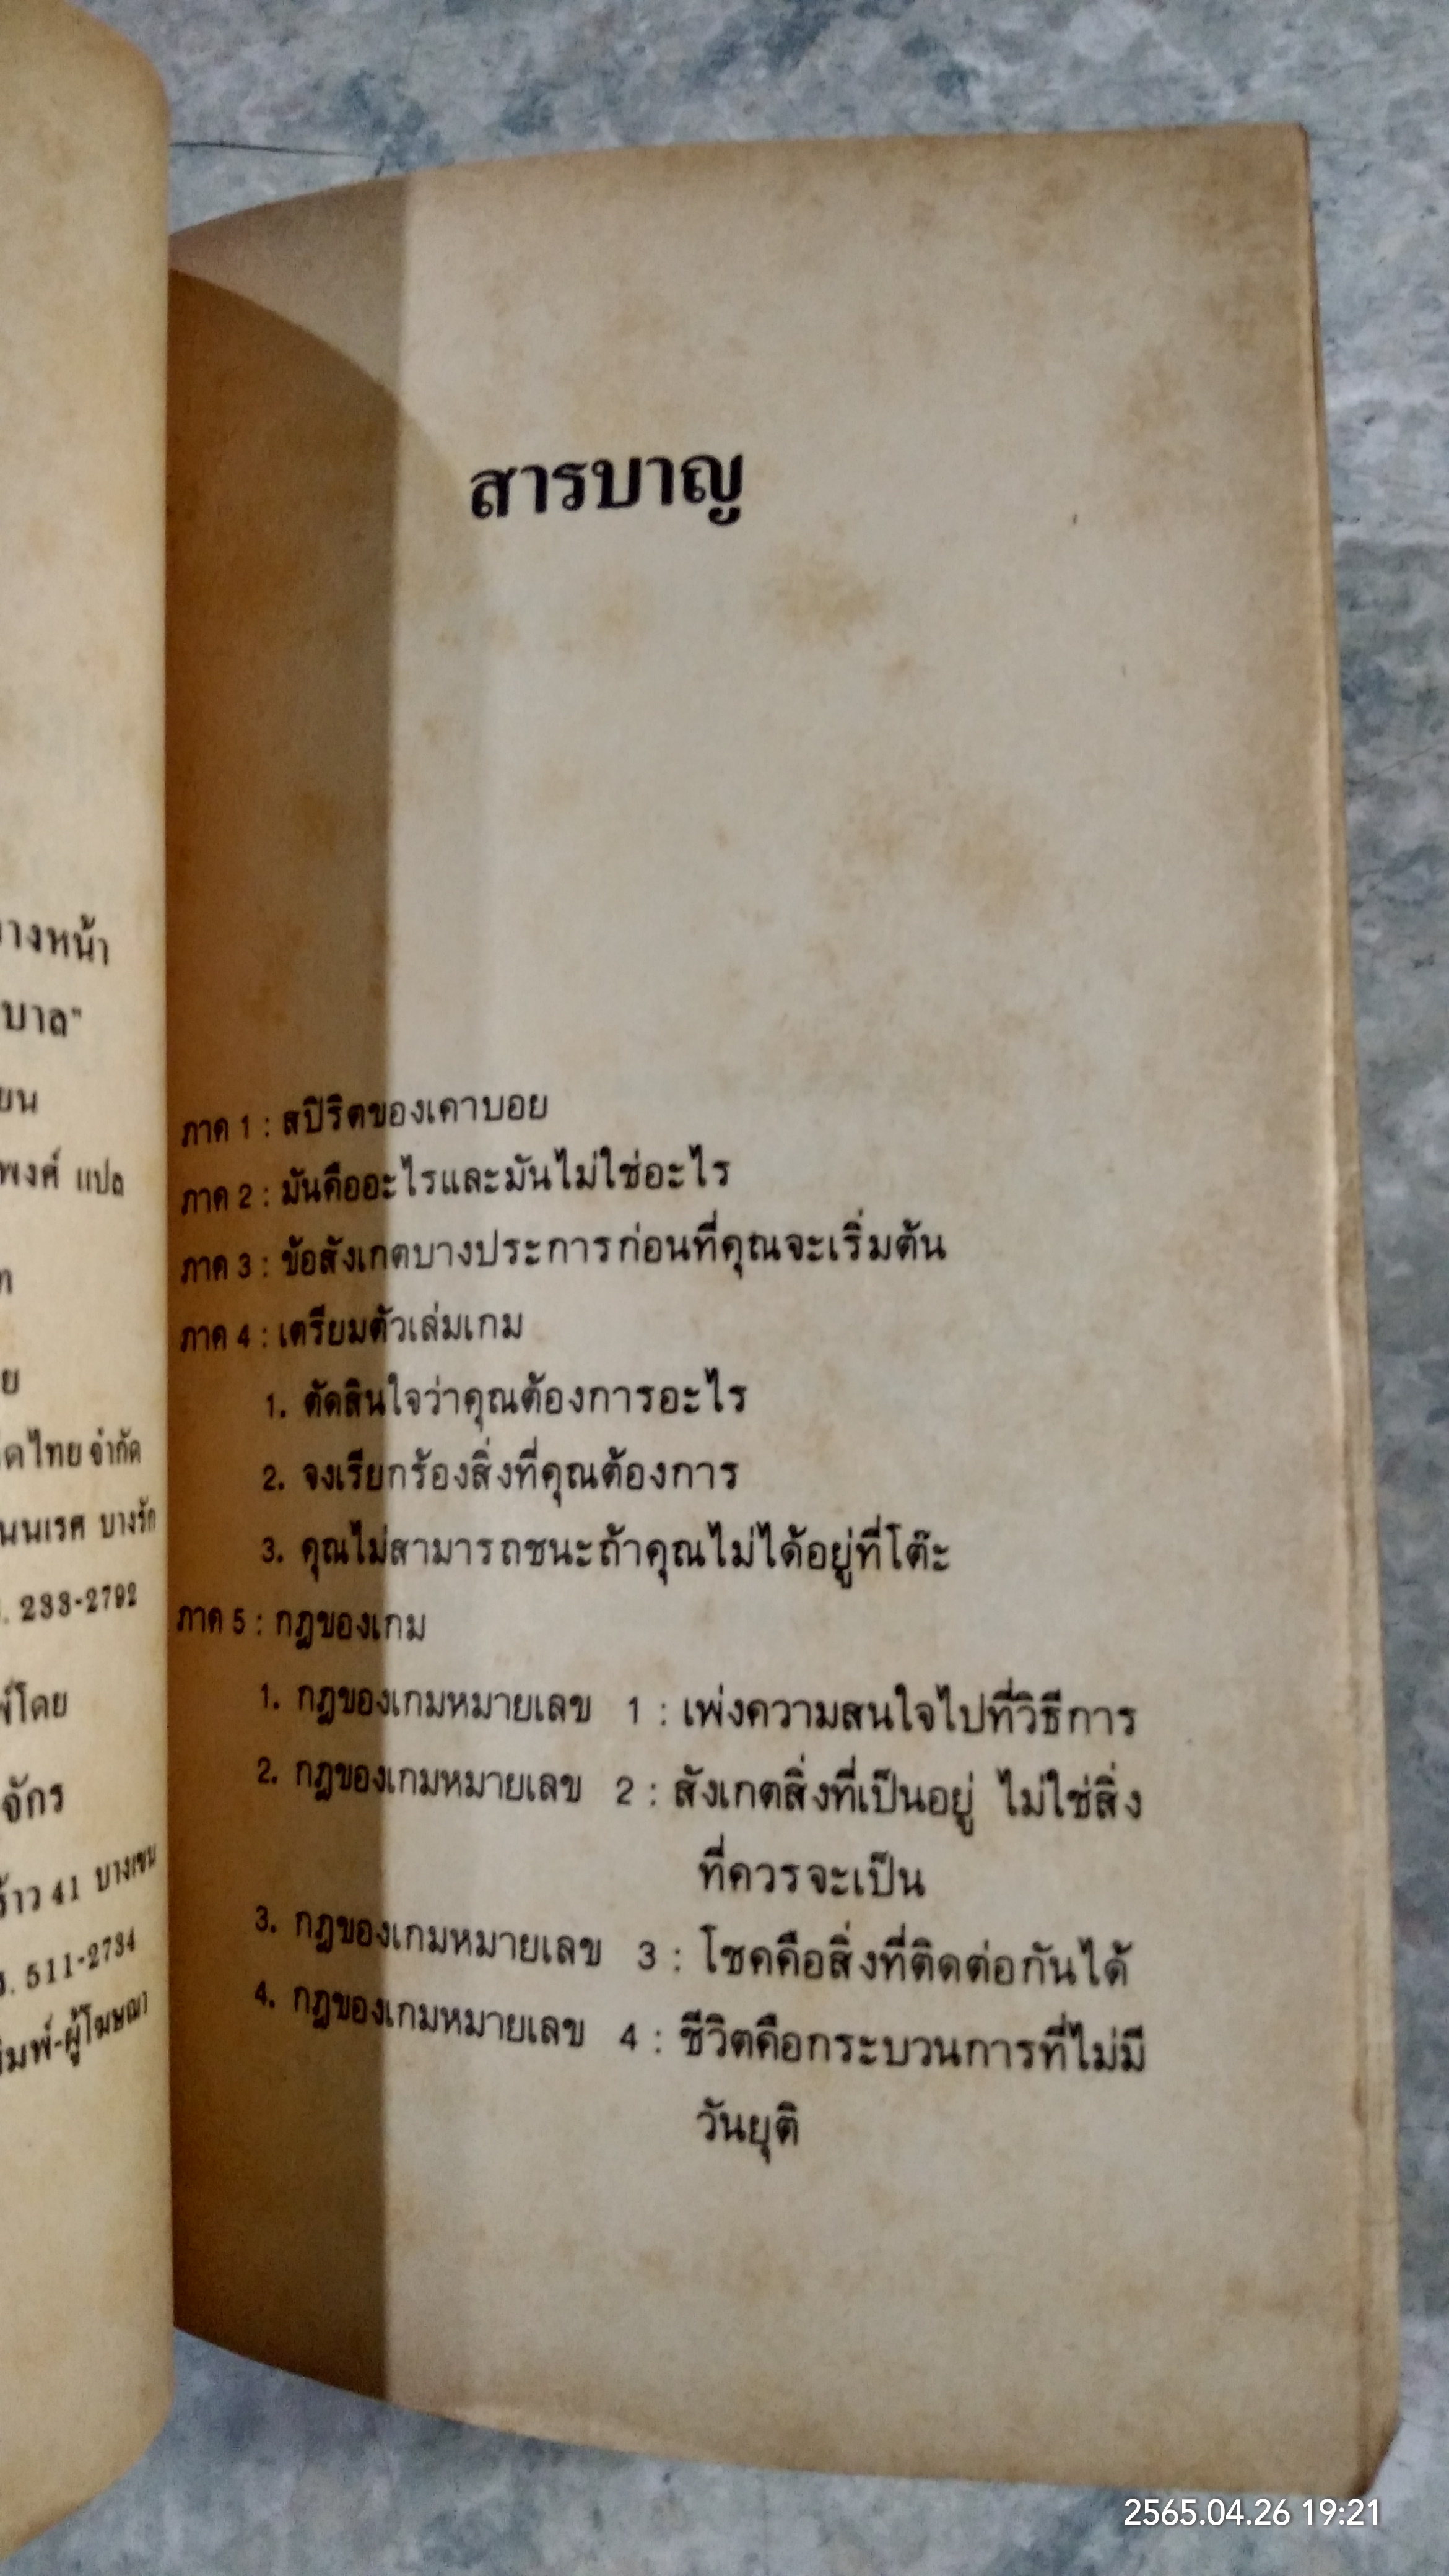 างหน้า
บาล"
ยน
พงศ์ แปล
ย
ดไทย จำกัด
นนเรศ บางรัก
. 233-2792
พ์โดย
จักร
ร้าว 41 บางเขน
. 511-2734
มพ์-ผู้โฆษณา
สารบาญ
ภาค 1 : สปิริตของเคาบอย
ภาค 2 : มันคืออะไรและมันไม่ใช่อะไร
ภาค 3 : ข้อสังเกตบางประการก่อนที่คุณจะเริ่มต้น
ภาค 4 : เตรียมตัวเล่มเกม
1. ตัดสินใจว่าคุณต้องการอะไร
2. จงเรียกร้องสิ่งที่คุณต้องการ
3. คุณไม่สามารถชนะถ้าคุณไม่ได้อยู่ที่โต๊ะ
ภาค 5 : กฎของเกม
1. กฎของเกมหมายเลข 1 : เพ่งความสนใจไปที่วิธีการ
2. กฎของเกมหมายเลข 2 : สังเกตสิ่งที่เป็นอยู่ ไม่ใช่สิ่ง
ที่ควรจะเป็น
3. กฎของเกมหมายเลข 3 : โชคคือสิ่งที่ติดต่อกันได้
4. กฎของเกมหมายเลข 4 : ชีวิตคือกระบวนการที่ไม่มี
วันยุติ
2565.04.26 19:21